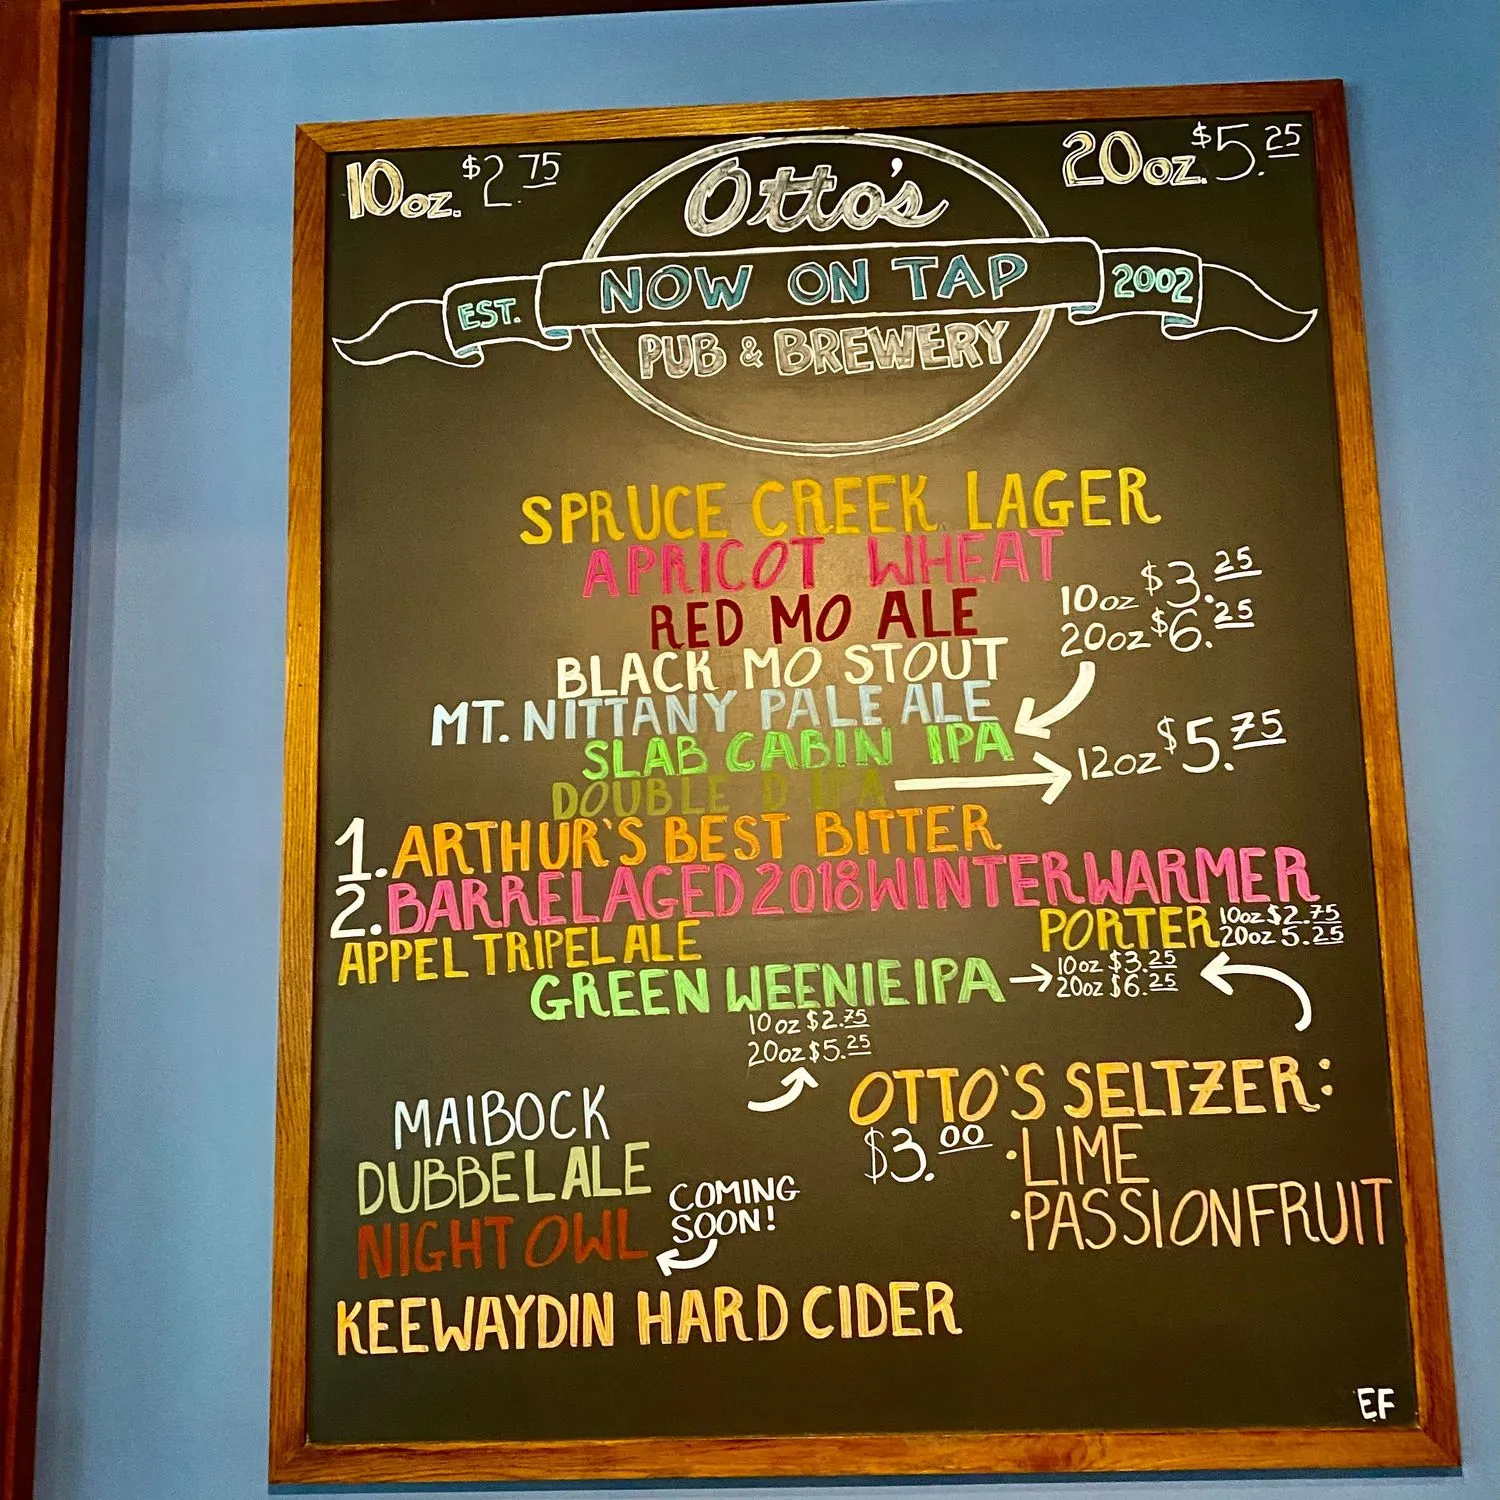 10oz. $2.75
20oz. $5.25
Otto's
EST. NOW ON TAP 2002
PUB & BREWERY
SPRUCE CREEK LAGER
APRICOT WHEAT
RED MO ALE
10oz $3.25
20oz $6.25
BLACK MO STOUT
MT. NITTANY PALE ALE
SLAB CABIN IPA
DOUBLE D IPA
12oz $5.75
1. ARTHUR'S BEST BITTER
2. BARREL AGED 2018 WINTER WARMER
APPEL TRIPEL ALE
PORTER 10oz $2.75
20oz 5.25
GREEN WEENIE IPA
10oz $3.25
20oz $6.25
10oz $2.75
20oz $5.25
MAIBOCK
DUBBEL ALE
NIGHT OWL
COMING
SOON!
OTTO'S SELTZER:
$3.00
·LIME
·PASSIONFRUIT
KEEWAYDIN HARD CIDER
EF